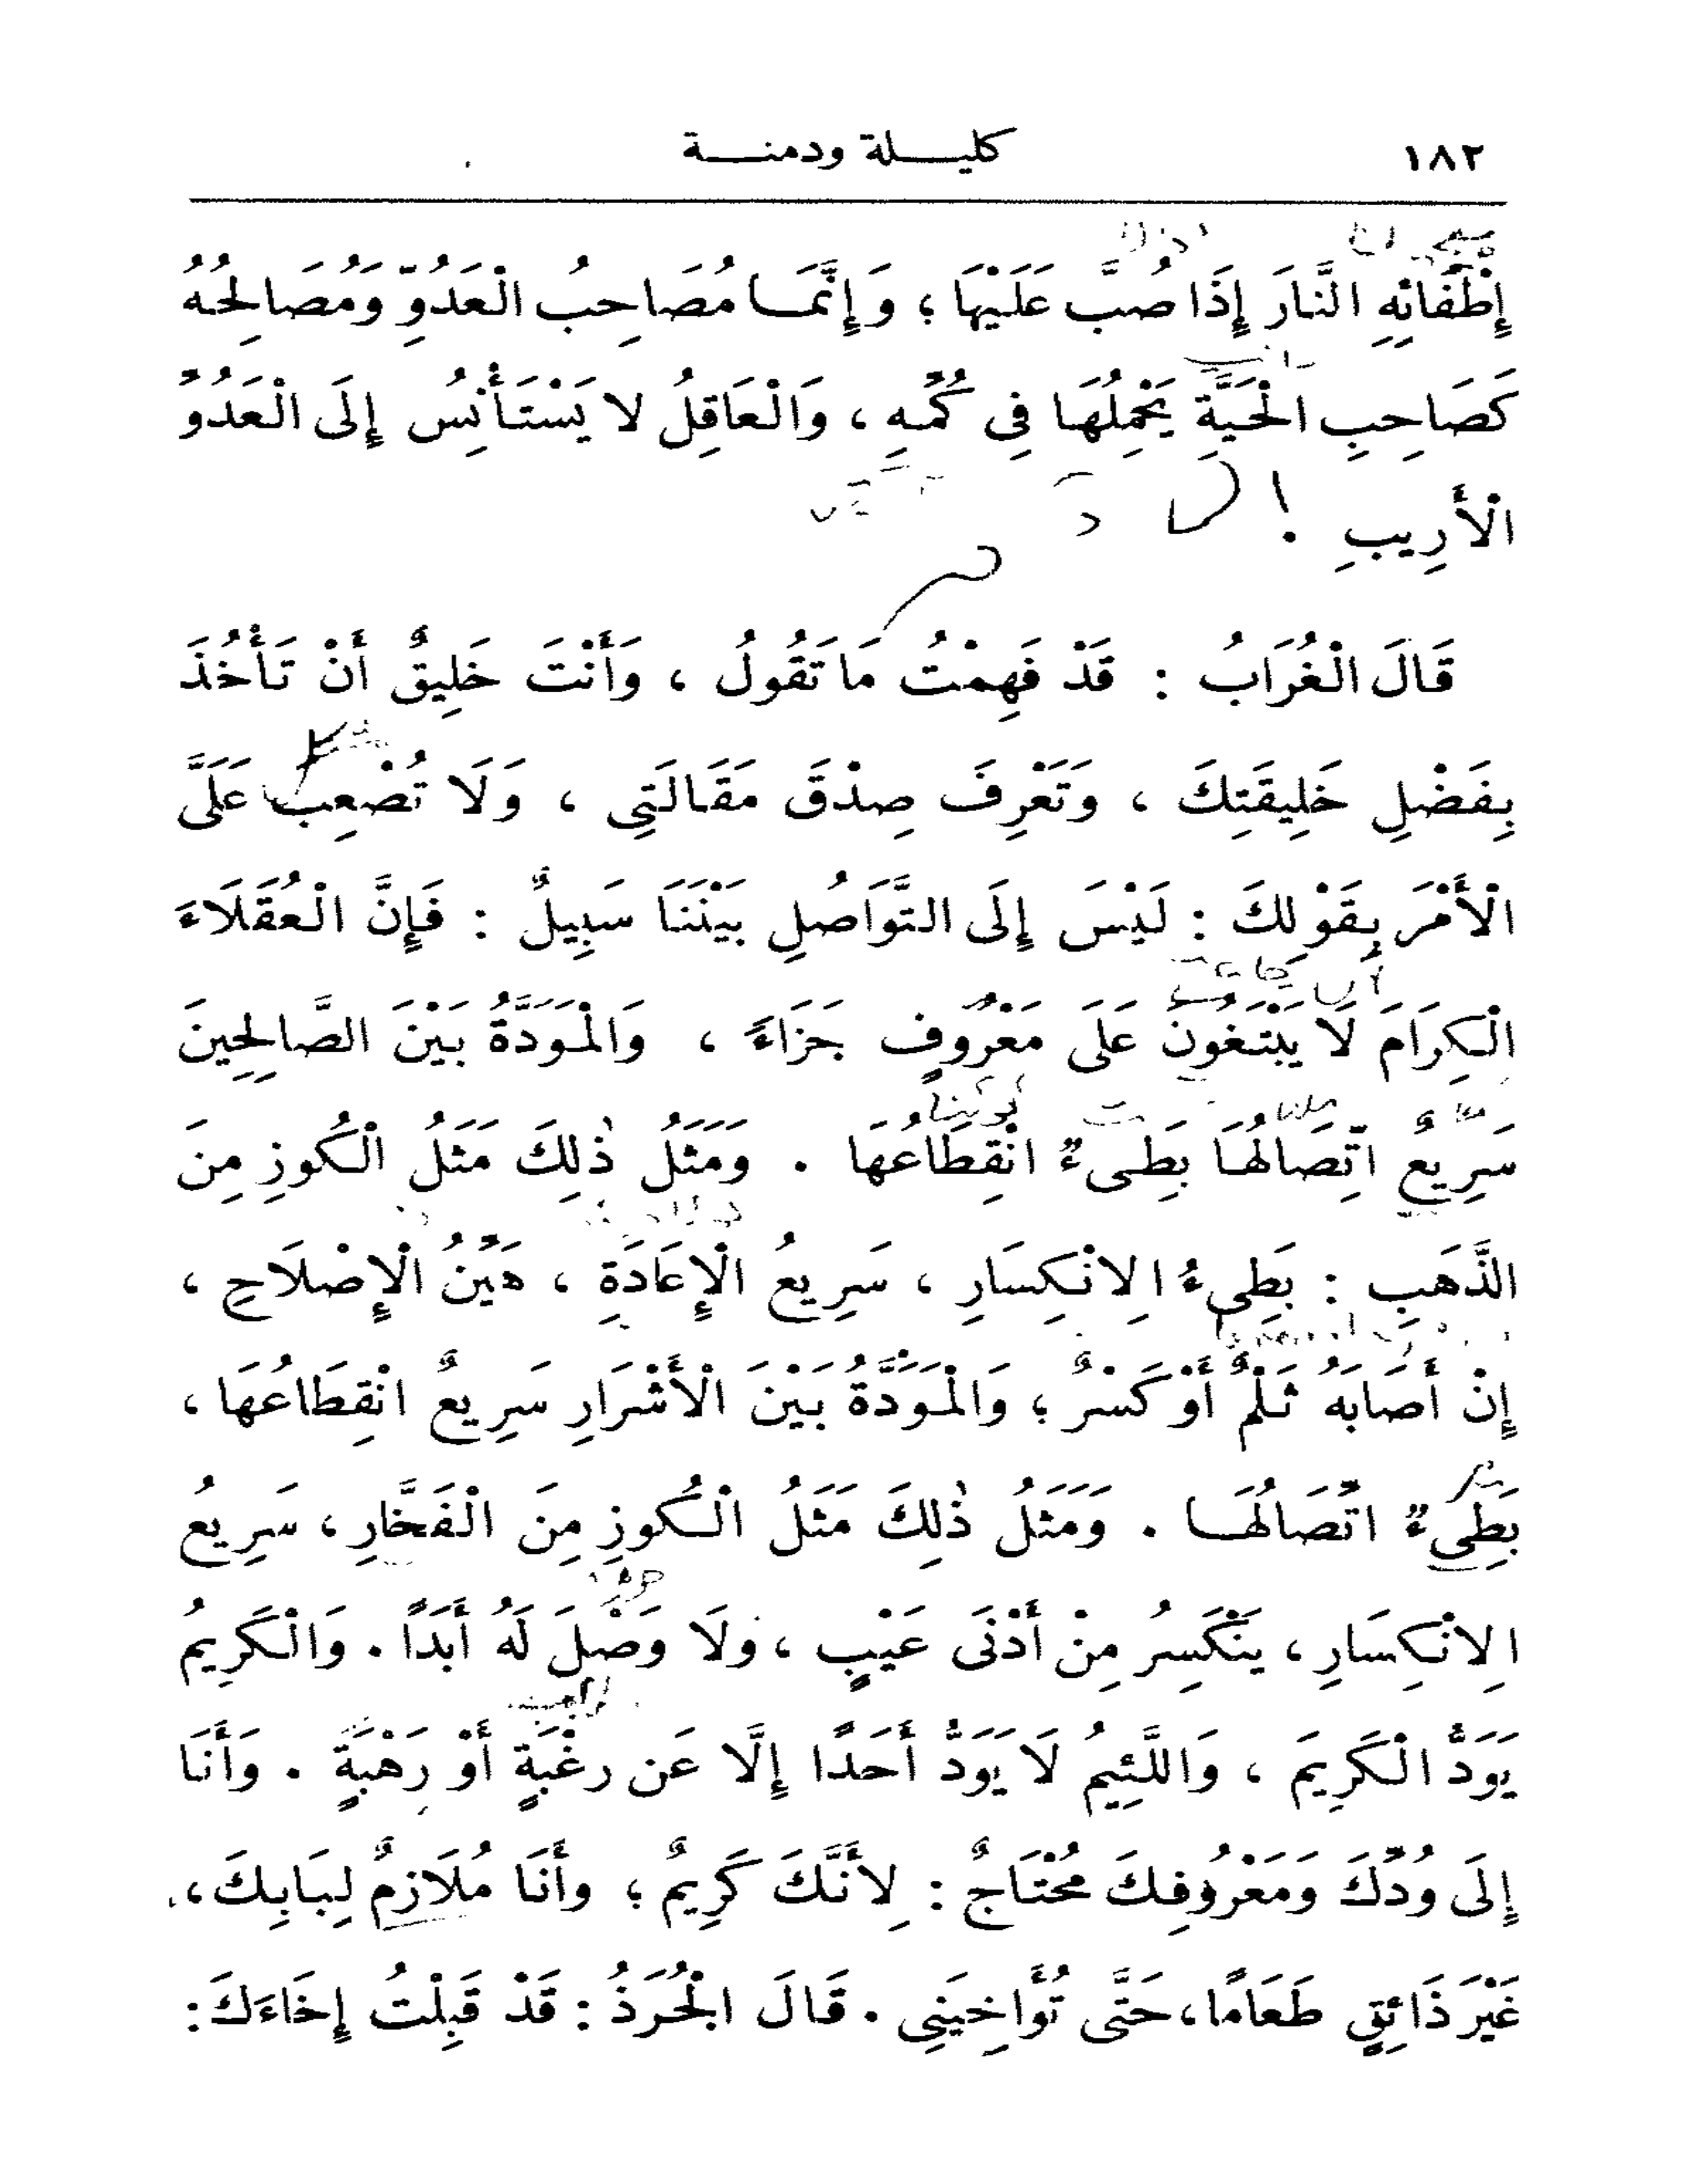 ١٨٢ كليلة ودمنة
إِطْفَائِهِ النَّارَ إِذَا صُبَّ عَلَيْهَا ؛ وَإِنَّمَا مُصَاحِبُ الْعَدُوِّ وَمُصَالِحُهُ
كَصَاحِبِ الْحَيَّةِ يَحْمِلُهَا فِى كُمِّهِ ، وَالْعَاقِلُ لا يَسْتَأْنِسُ إِلَى الْعَدُوِّ
الْأَرِيبِ .
قَالَ الْغُرَابُ : قَدْ فَهِمْتُ مَا تَقُولُ ، وَأَنْتَ خَلِيقٌ أَنْ تَأْخُذَ
بِفَضْلِ خَلِيقَتِكَ ، وَتَعْرِفَ صِدْقَ مَقَالَتِى ، وَلَا تُصْعِبَ عَلَىَّ
الْأَمْرَ بِقَوْلِكَ : لَيْسَ إِلَى التَّوَاصُلِ بَيْنَنَا سَبِيلٌ : فَإِنَّ الْعُقَلَاءَ
الْكِرَامَ لَا يَبْتَغُونَ عَلَى مَعْرُوفٍ جَزَاءً ، وَالْمَوَدَّةُ بَيْنَ الصَّالِحِينَ
سَرِيعٌ اتِّصَالُهَا بَطِىءٌ انْقِطَاعُهَا . وَمَثَلُ ذٰلِكَ مَثَلُ الْكُوزِ مِنَ
الذَّهَبِ : بَطِىءُ الِانْكِسَارِ ، سَرِيعُ الْإِعَادَةِ ، هَيِّنُ الْإِصْلَاحِ ،
إِنْ أَصَابَهُ ثَلْمٌ أَوْ كَسْرٌ ؛ وَالْمَوَدَّةُ بَيْنَ الْأَشْرَارِ سَرِيعٌ انْقِطَاعُهَا ،
بَطِىءٌ اتِّصَالُهَا . وَمَثَلُ ذٰلِكَ مَثَلُ الْكُوزِ مِنَ الْفَخَّارِ ، سَرِيعُ
الِانْكِسَارِ ، يَنْكَسِرُ مِنْ أَدْنَى عَيْبٍ ، وَلَا وَصْلَ لَهُ أَبَدًا . وَالْكَرِيمُ
يَوَدُّ الْكَرِيمَ ، وَاللَّئِيمُ لَا يَوَدُّ أَحَدًا إِلَّا عَن رغْبَةٍ أَوْ رَهْبَةٍ . وَأَنَا
إِلَى وُدِّكَ وَمَعْرُوفِكَ مُحْتَاجٌ : لِأَنَّكَ كَرِيمٌ ؛ وأَنَا مُلَازِمٌ لِبَابِكَ ،
غَيْرَ ذَائِقٍ طَعَامًا ، حَتَّى تُؤَاخِيَنِى . قَالَ الْجُرَذُ : قَدْ قَبِلْتُ إِخَاءَكَ :